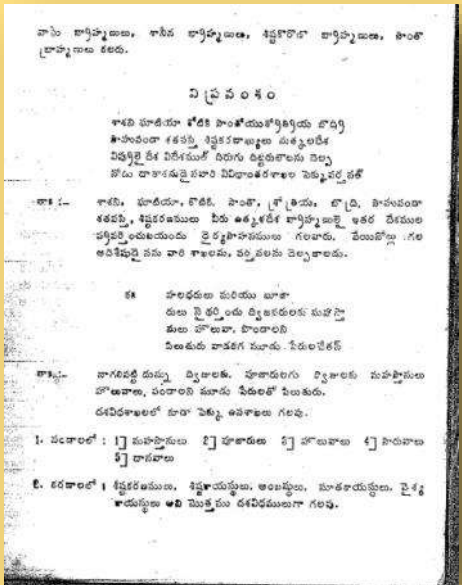 వాసి బ్రాహ్మణులు, శాసీన బ్రాహ్మణులు, శిష్టకొరొడొ బ్రాహ్మణులు, సొంతొ
బ్రాహ్మణులు కలరు.
విప్రవంశం
శాశని ఘాటియా కోటికి సాంతోయుశ్రోత్రియ బొద్రి
సాహువండా శతపస్తి శిష్టకరణాఖ్యులు నుత్కలదేశ
విప్రులై దేశ విదేశముల్ దిరుగు
తా॥ :— శాశని, ఘాటియా, కొటికి, సాంతొ, శ్రోత్రియ, బొద్రి, సాహువండా
శతపస్తి, శిష్టకరణములు వీరు ఉత్కళదేశ బ్రాహ్మణులై ఇతర దేశముల
ధైర్యసాహసములు గలవారు. వేయినోల్లు గల
ఆదిశేషుడై నను వారి శాఖలను, వర్తనలను దెల్పజాలడు.
కం హలధరులు మరియు బూజా
రులు ద్విజవరులకు మహస్తా
నులు హొలువా, పొండాలని
పిలుతురు వాడరిగ మూడు పేరులచేతన్
తా॥:— నాగలిపట్టి దున్ను ద్విజులకు, పూజారులగు ద్విజులకు మహస్తానులు
హొలువాలు, పండాలని మూడు పేరులతో పిలుతురు.
దశవిధశాఖలలో కూడా పెక్కు ఉపశాఖలు గలవు.
1. పండాలలో : 1] మహస్తానులు 2] పూజారులు 3] హొలువాలు 4] సారువాలు
5] దాసవాలు
2. కరణాలలో : శిష్టకరణములు, శిష్టకాయస్థులు, అంబష్ఠులు, మాతకాయస్థులు, వైశ్య
కాయస్థులు అని మొత్తము దశవిధములుగా గలవు.